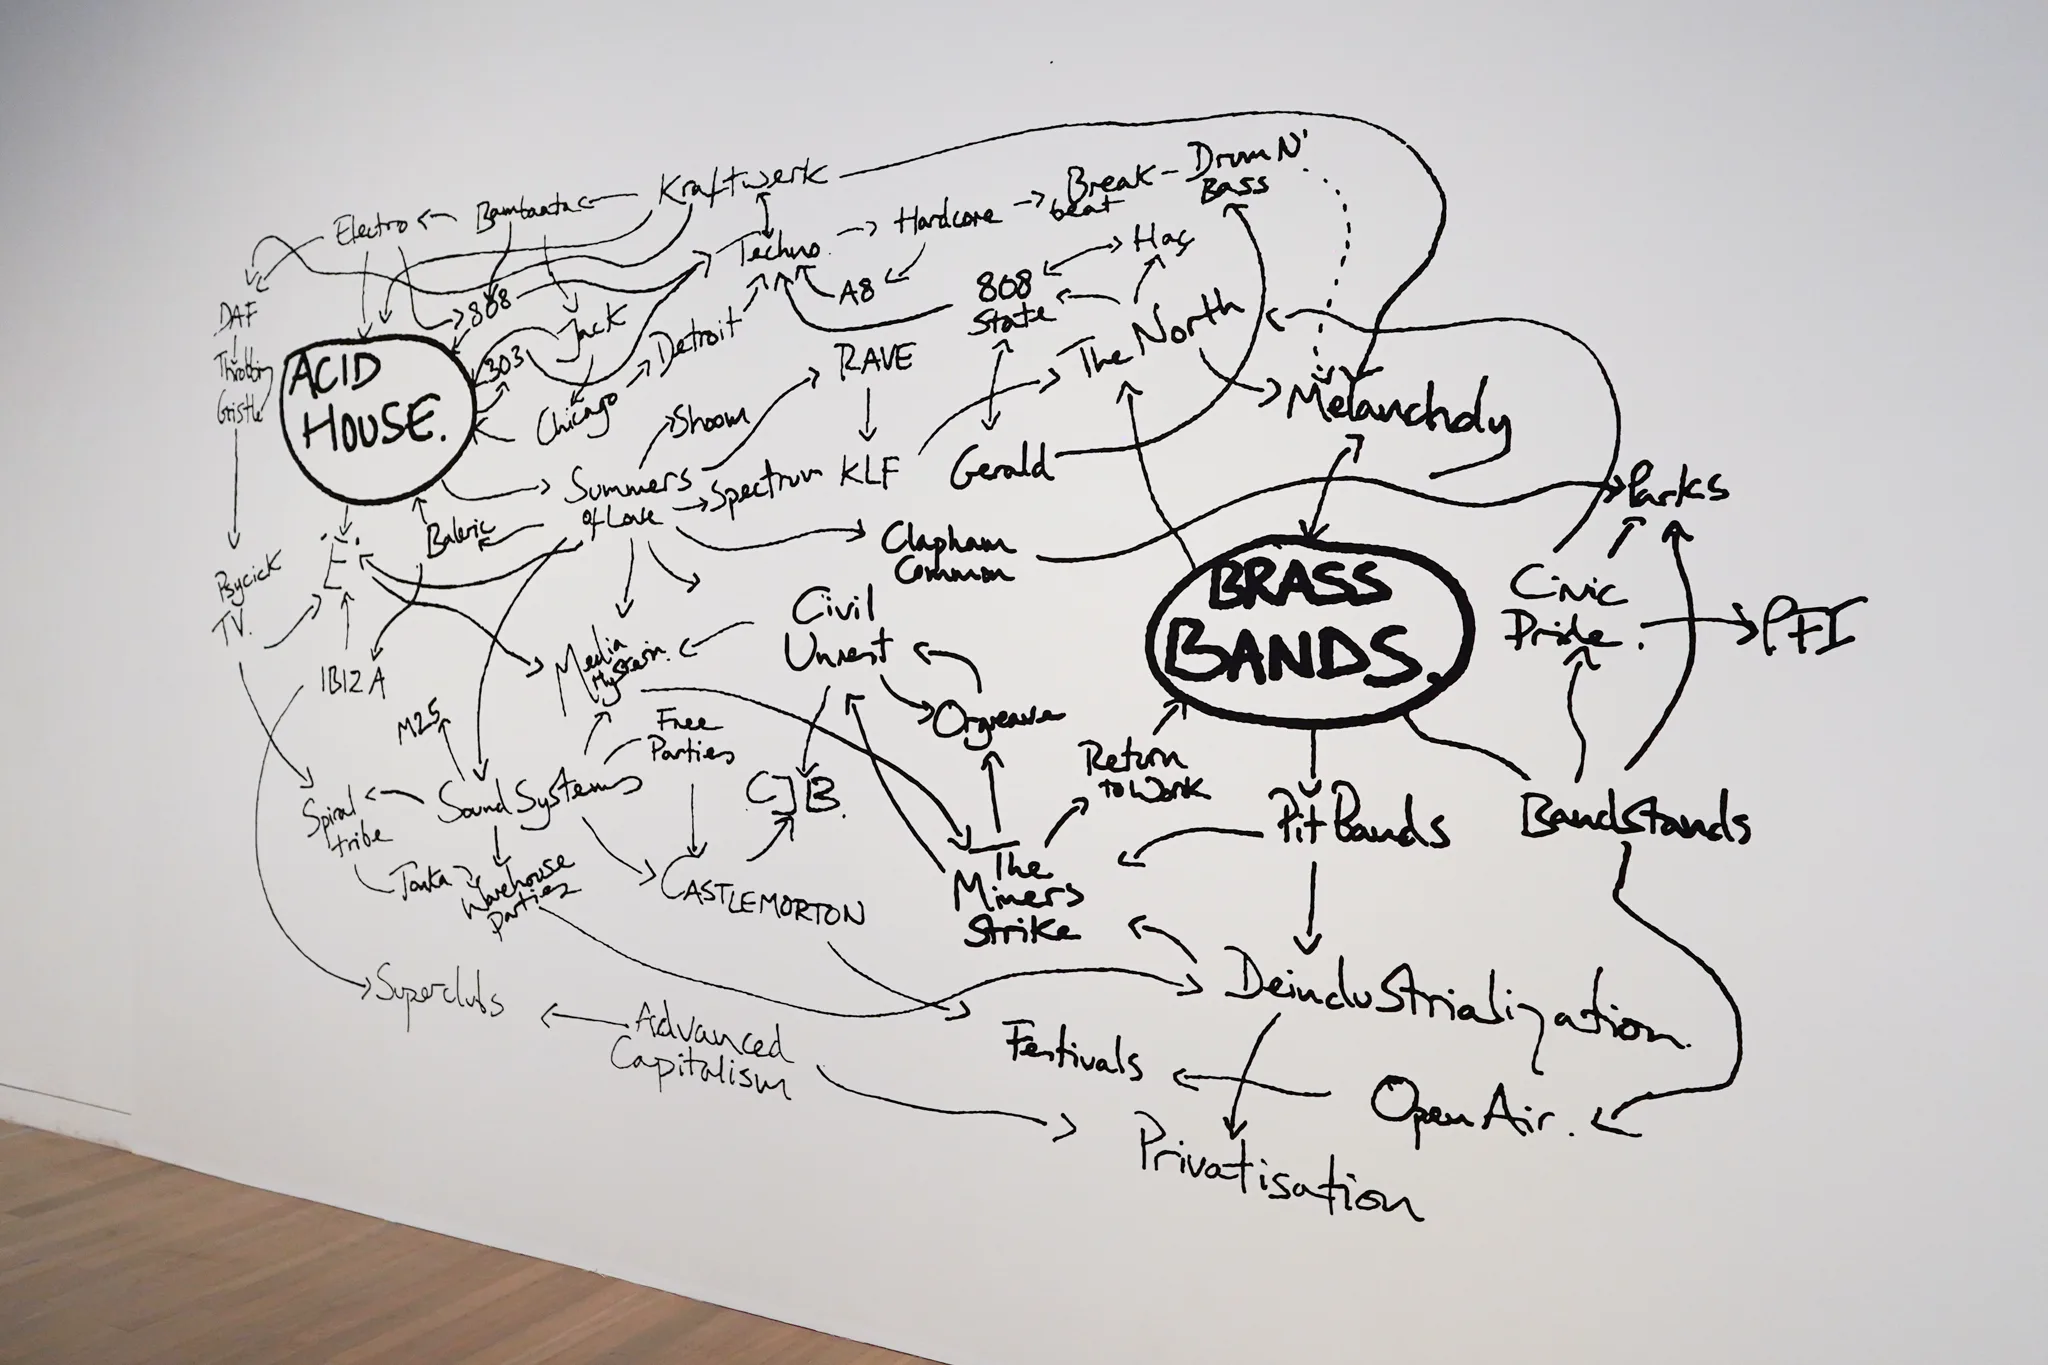 Kraftwerk
Break-
beat
Drum N'
Bass
Electro
Bambaata
Hardcore
Techno.
Hac
DAF
808
A8
808
State
Throbbing
Gristle
ACID
HOUSE.
303
Jack
Detroit
RAVE
The North
Chicago
Shoom
Melancholy
Summers
of Love
Spectrum
KLF
Gerald
Parks
Baleric
'E'.
Clapham
Common
Psycick
TV.
Civil
Unrest
BRASS
BANDS.
Civic
Pride.
PFI
IBIZA
Media
Hysteria.
M25
Free
Parties
Orgreave
Return
to Work
Spiral
tribe
Sound Systems
CJB.
Pit Bands
Bandstands
Tonka
Warehouse
parties
CASTLEMORTON
The
Miners
Strike
Superclubs
Advanced
Capitalism
Deindustrialization.
Festivals
Open Air.
Privatisation